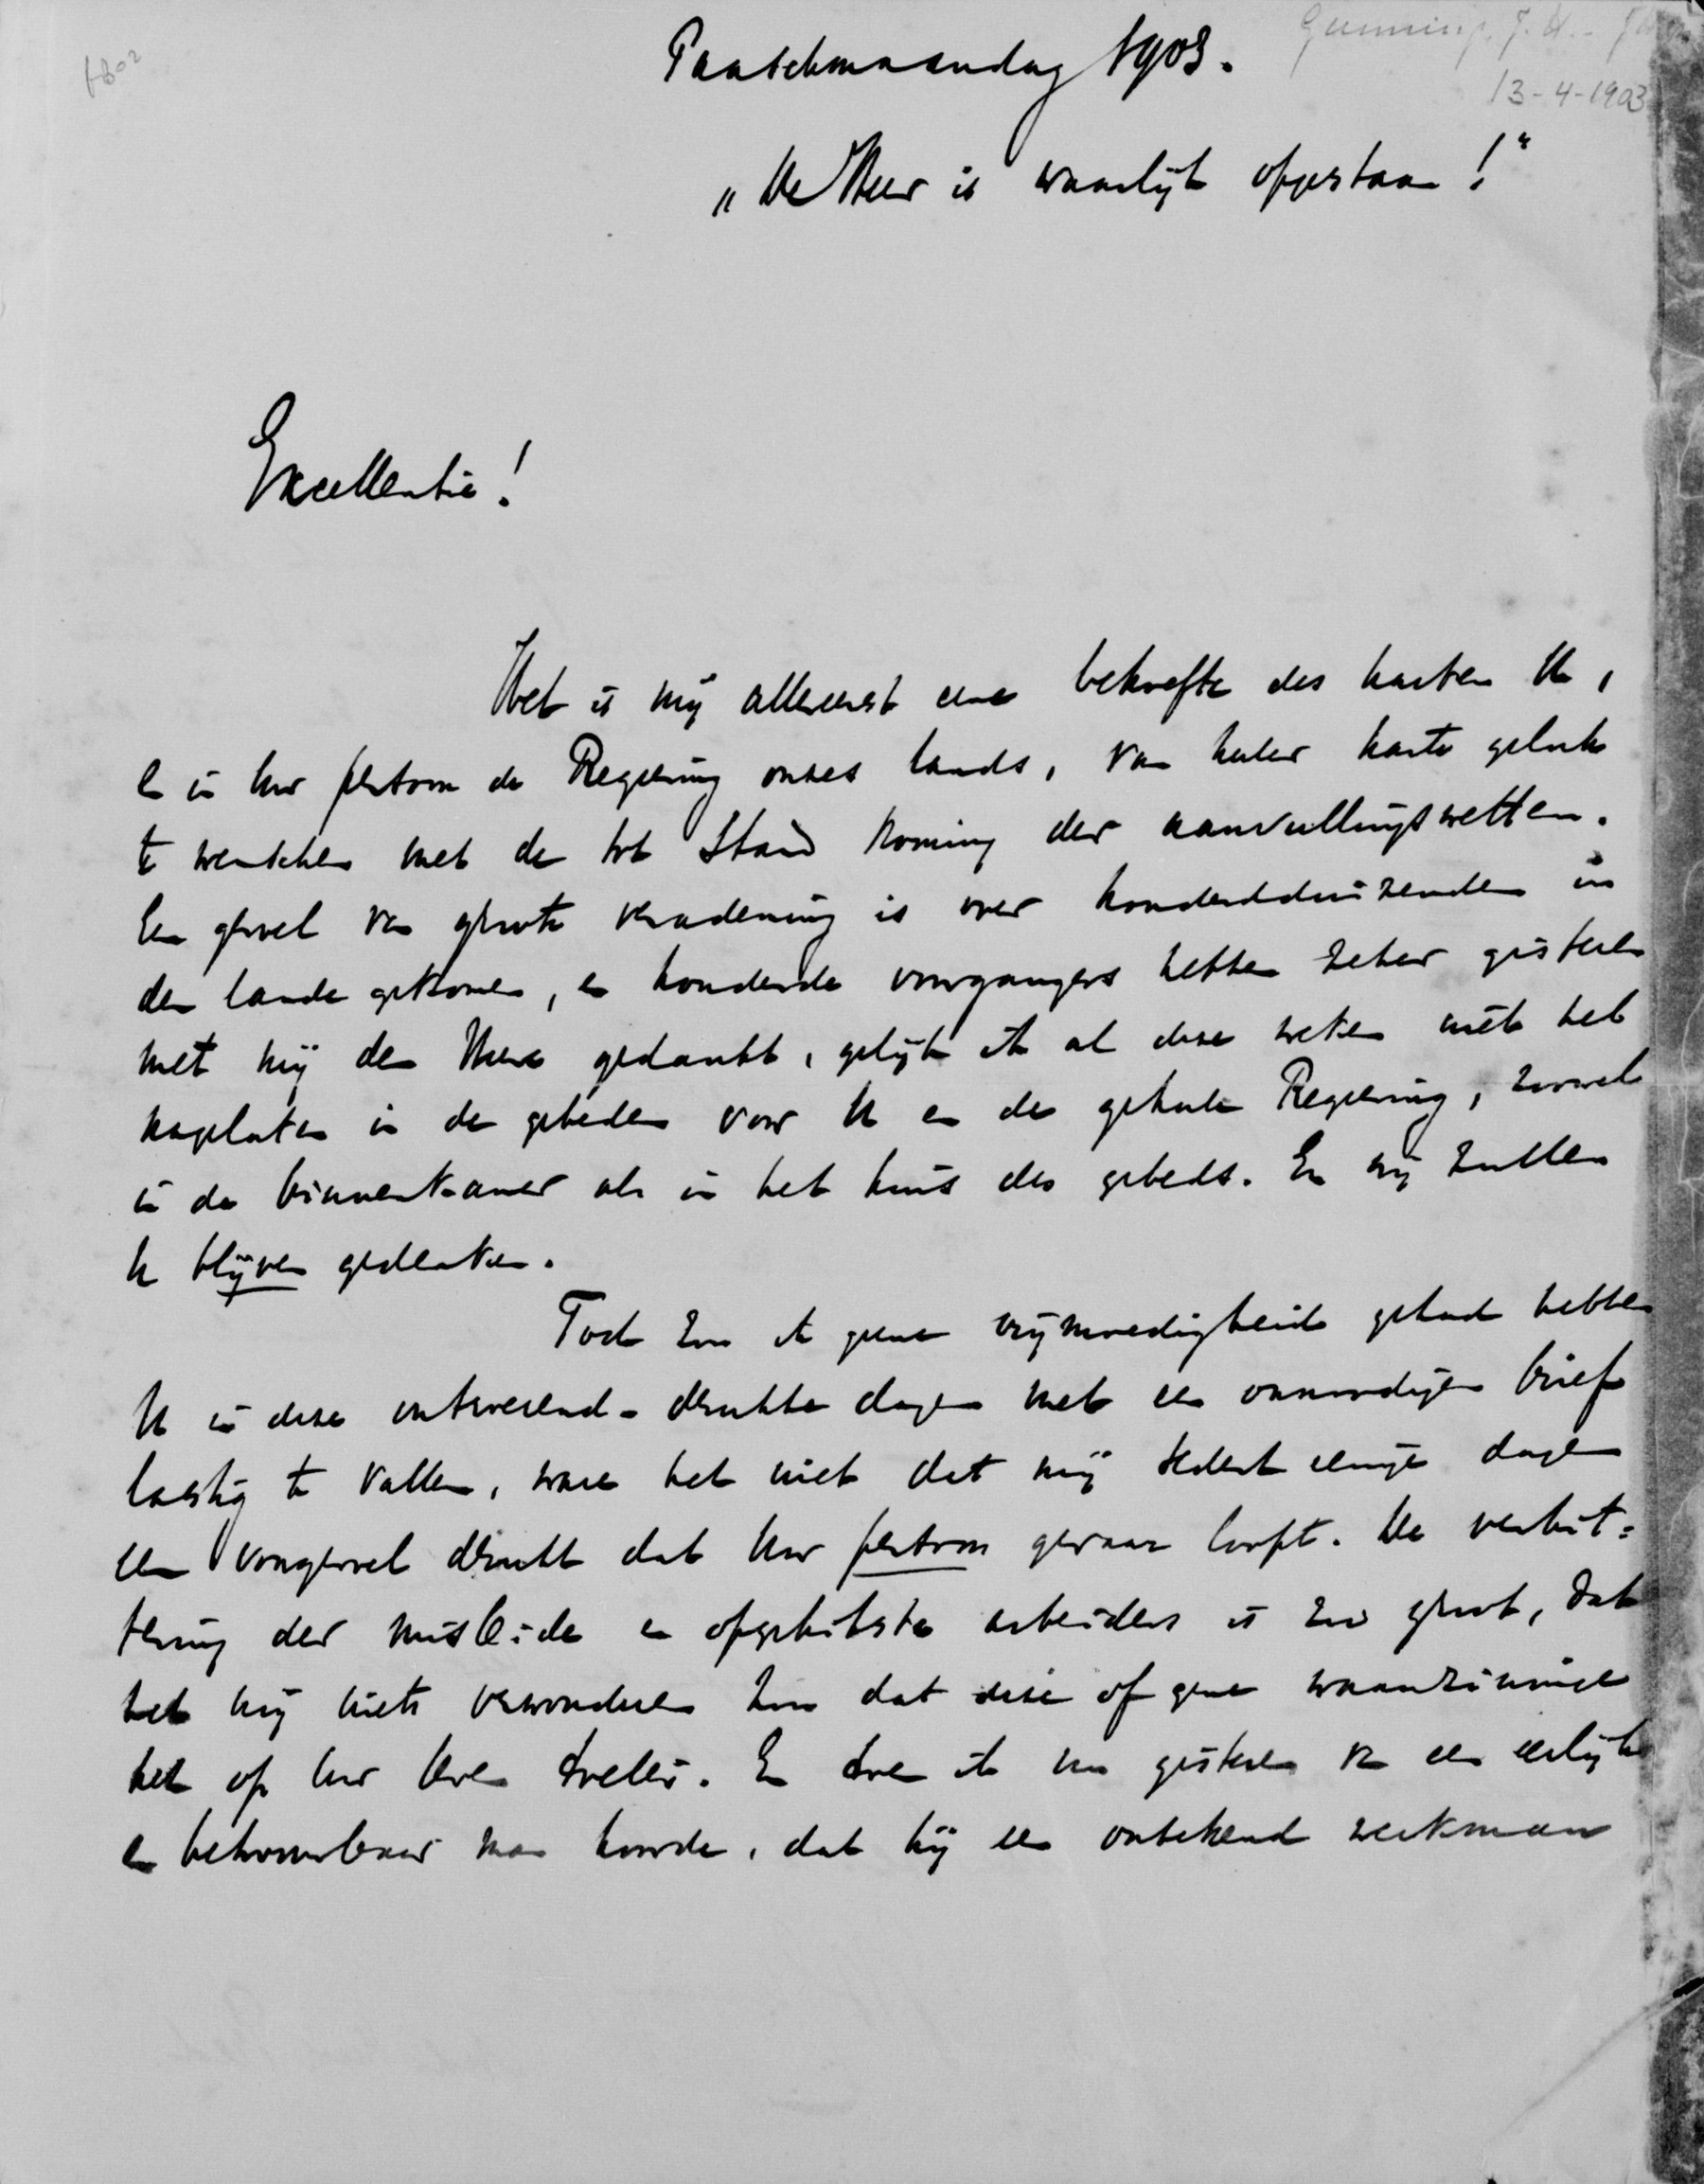 6802
Gunning, J.H.-
13-4-1903
Paaschmaandag 1903.
„De Heer is waarlijk opgestaan!"
Excellentie!
Het is mij allereerst eene behoefte des harten U,
en in Uw persoon de Regeering onzes lands, van heler harte geluk
te wenschen met de tot Stand koming der aanvullingswetten.
Een gevoel van groote verademing is over honderdduizenden in
den lande gekomen, en honderde voorgangers hebben zeker gisteren
met mij den Heere gedankt, gelijk ik al deze weken niet heb
nagelaten in de gebeden voor U en de geheele Regeering, zoowel
in de binnenkamer als in het huis des gebeds. En wij zullen
U blijven gedenken.
Toch zou ik geene vrijmoedigheid gehad hebben
U in deze ontzettend-drukke dagen met een onnoodigen brief
lastig te vallen, ware het niet dat mij sedert eenige dagen
een voorgevoel drukt dat Uw persoon gevaar loopt. De verbit=
tering der misleide en opgehitste arbeiders is zoo groot, dat
het mij niets verwonderen zou dat deze of gene waanzinnige
het op Uw leven toelei. En toen ik nu gisteren van een eerlijk
en betrouwbaar man hoorde, dat hij een onbekend werkman